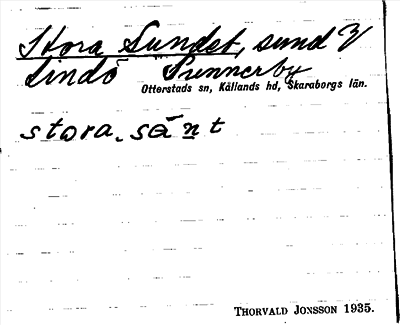 Stora Sundet, sund
Lindö Sunnerby
Otterstads sn, Kållands hd, Skaraborgs län.
stora. sānt
THORVALD JONSSON 1935.